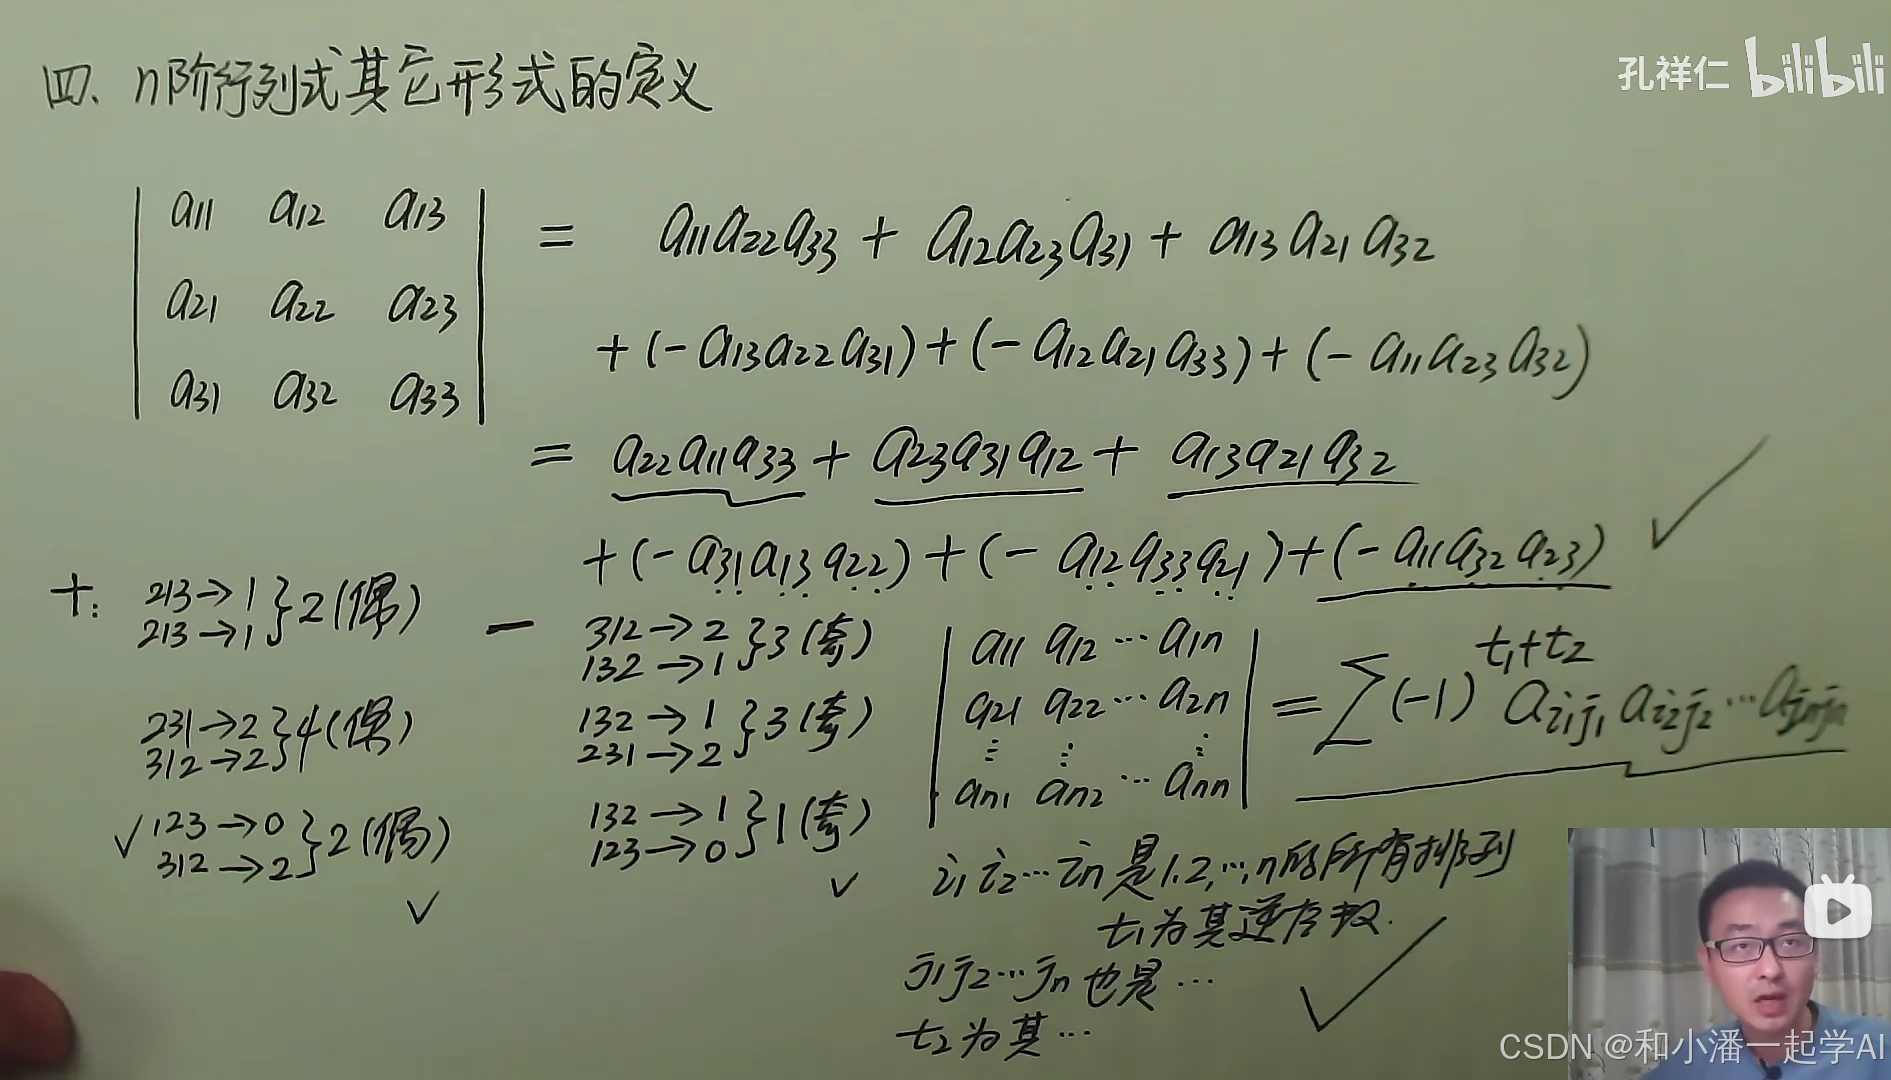 四、n阶行列式其它形式的定义
孔祥仁 bilibili
| a11 a12 a13 |
| a21 a22 a23 |
| a31 a32 a33 |
= a11a22a33 + a12a23a31 + a13a21a32
+(-a13a22a31)+(-a12a21a33)+(-a11a23a32)
= a22a11a33 + a23a31a12 + a13a21a32 ✓
+(-a31a13a22)+(-a12a33a21)+(-a11a32a23)
+:
213→1
213→1 }2(偶)
231→2
312→2 }4(偶)
✓123→0
312→2 }2(偶)
✓
-
312→2
132→1 }3(奇)
132→1
231→2 }3(奇)
132→1
123→0 }1(奇)
✓
| a11 a12 ⋯ a1n |
| a21 a22 ⋯ a2n |
| ⋮ ⋮ ⋮ |
| an1 an2 ⋯ ann |
= Σ(-1)^(t1+t2) ai1j1 ai2j2 ⋯
i1i2⋯in是1,2,⋯,n的所有排列
t1为其逆序数.
j1j2⋯jn也是⋯
t2为其⋯
✓
CSDN @和小潘一起学AI